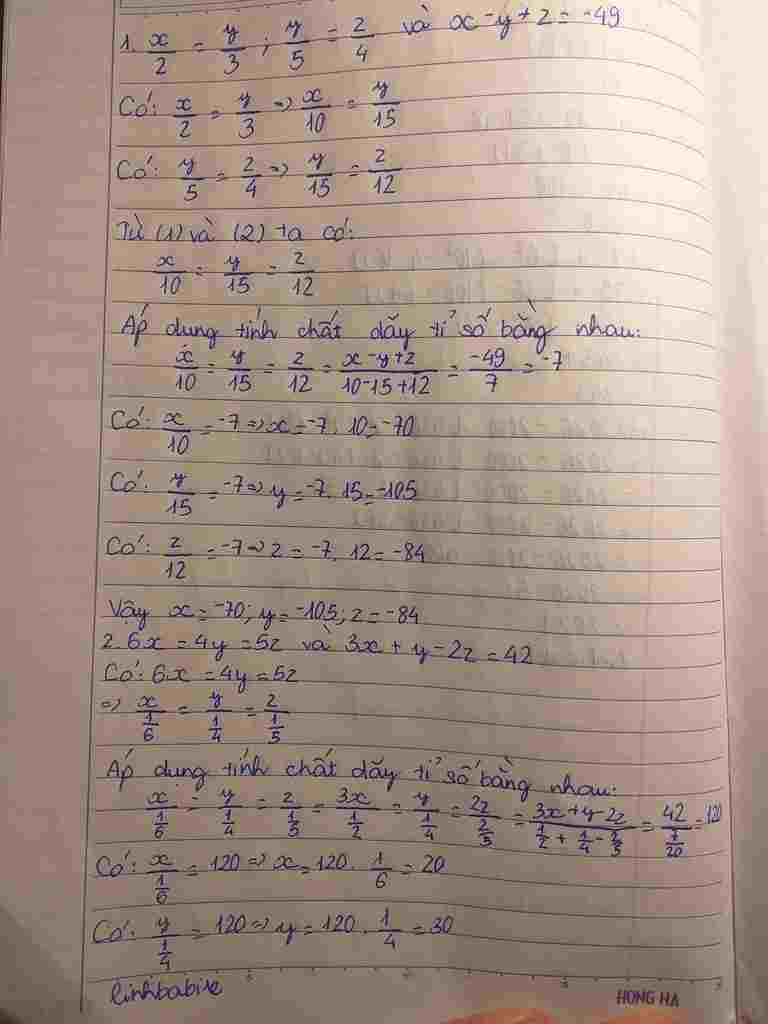 1. x/2 = y/3 ; y/5 = z/4 và x - y + z = -49
Có: x/2 = y/3 => x/10 = y/15
Có: y/5 = z/4 => y/15 = z/12
Từ (1) và (2) ta có:
x/10 = y/15 = z/12
Áp dung tính chất dãy tỉ số bằng nhau:
x/10 = y/15 = z/12 = (x - y + z)/(10 - 15 + 12) = -49/7 = -7
Có: x/10 = -7 => x = -7 . 10 = -70
Có: y/15 = -7 => y = -7 . 15 = -105
Có: z/12 = -7 => z = -7 . 12 = -84
Vây x = -70; y = -105; z = -84
2. 6x = 4y = 5z và 3x + y - 2z = 42
Có: 6x = 4y = 5z
=> x/(1/6) = y/(1/4) = z/(1/5)
Áp dung tính chất dãy tỉ số bằng nhau:
x/(1/6) = y/(1/4) = z/(1/5) = 3x/(1/2) = y/(1/4) = 2z/(2/5) = (3x + y - 2z)/(1/2 + 1/4 - 2/5) = 42/(7/20) = 120
Có: x/(1/6) = 120 => x = 120 . 1/6 = 20
Có: y/(1/4) = 120 => y = 120 . 1/4 = 30
HONG HA